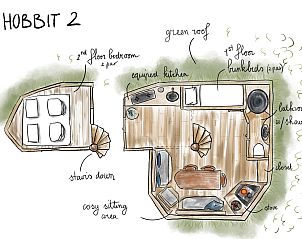 HOBBIT 2
green roof
2nd floor bedroom
2 pax
1st floor
bunkbeds (2 pax)
equiped kitchen
bathroom
w/ shower
stairs down
closet
cosy sitting
area
stove